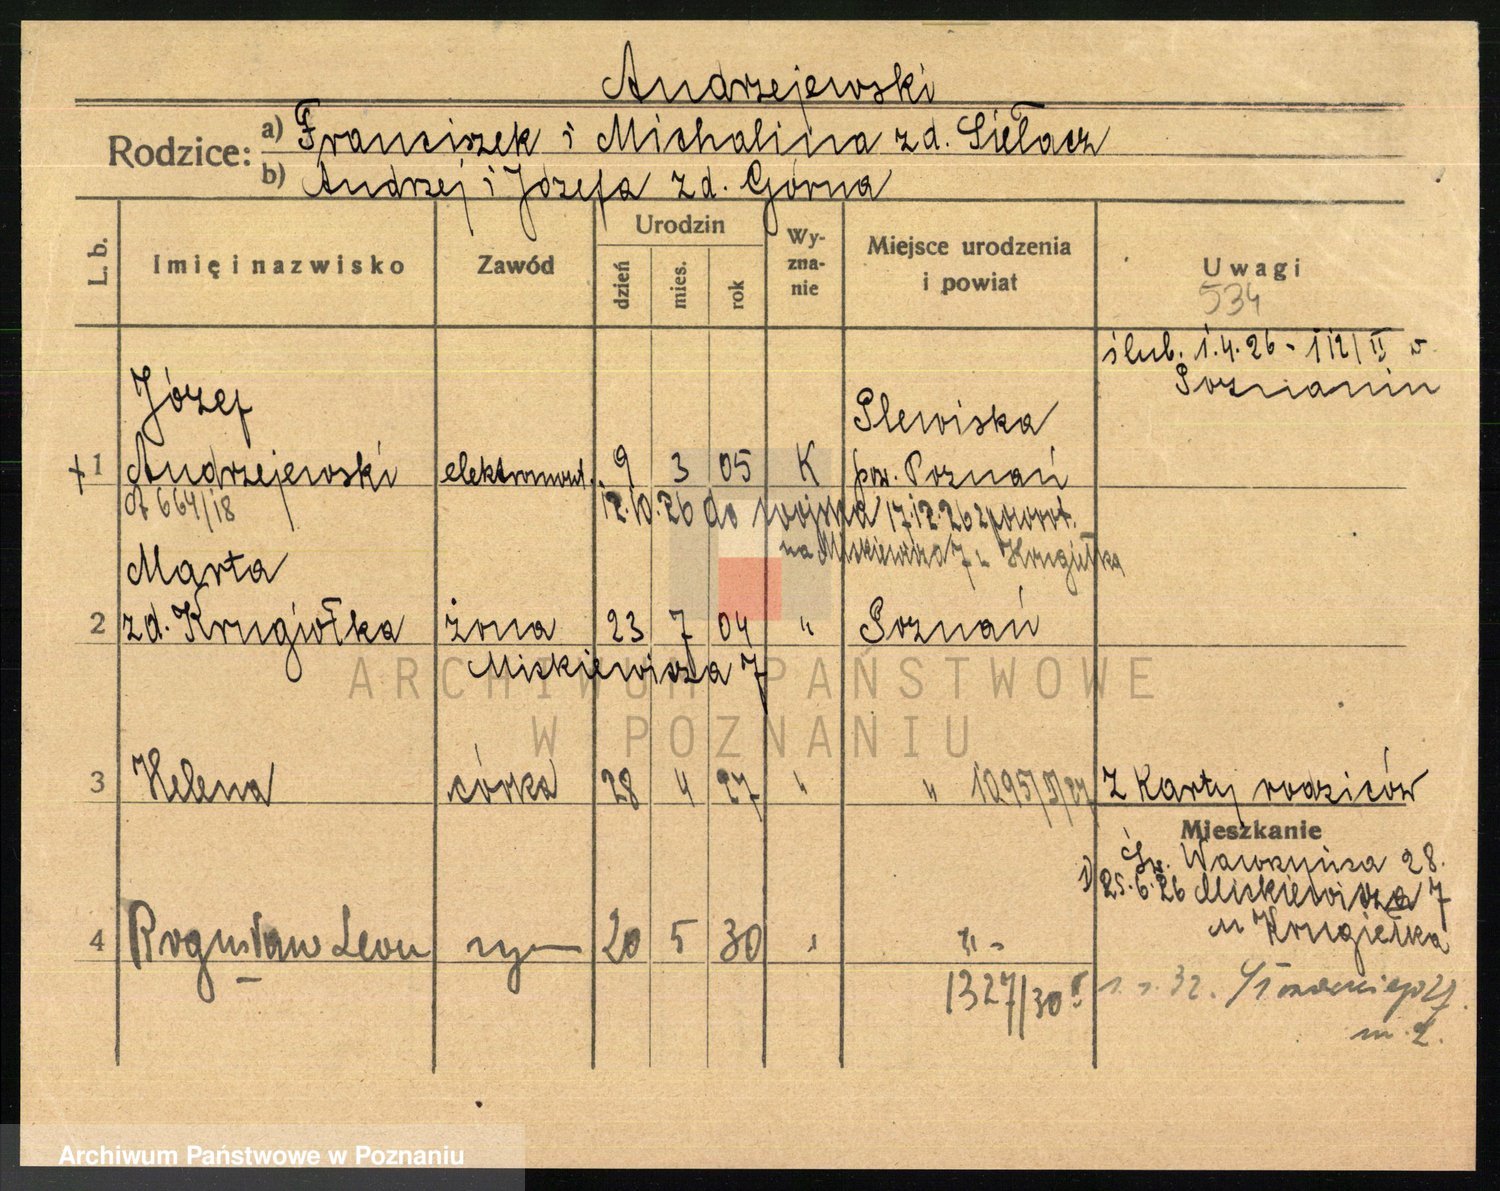 Andrzejewski
Rodzice: a) Franciszek i Michalina zd. Siełacz
b) Andrzej i Józefa zd. Górna
L. b. Imię i nazwisko Zawód Urodzin dzień mies. rok Wy-zna-nie Miejsce urodzenia i powiat Uwagi
534
ślub. 1.4.26 - 112/II w
Poznaniu
Józef Plewiska
+1 Andrzejewski elektromont. 9 3 05 K pow. Poznań
664/18 12.10.26 do wojska 17.12.26 z powrot.
na Miskiewicza 7 u Krugiełka
Marta
2 zd. Krugiołka żona 23 7 04 " Poznań
Miskiewicza 7
ARCHIWUM PAŃSTWOWE
W POZNANIU
3 Helena córka 28 4 27 " " 1095/V/27 z karty rodziców
Mieszkanie
1) Św. Wawrzyńca 28.
25.6.26 Miskiewicza 7
u Krugiełka
4 Bogusław Leon syn 20 5 30 " "
1327/30 1.1.32. 27
m. 2.
Archiwum Państwowe w Poznaniu